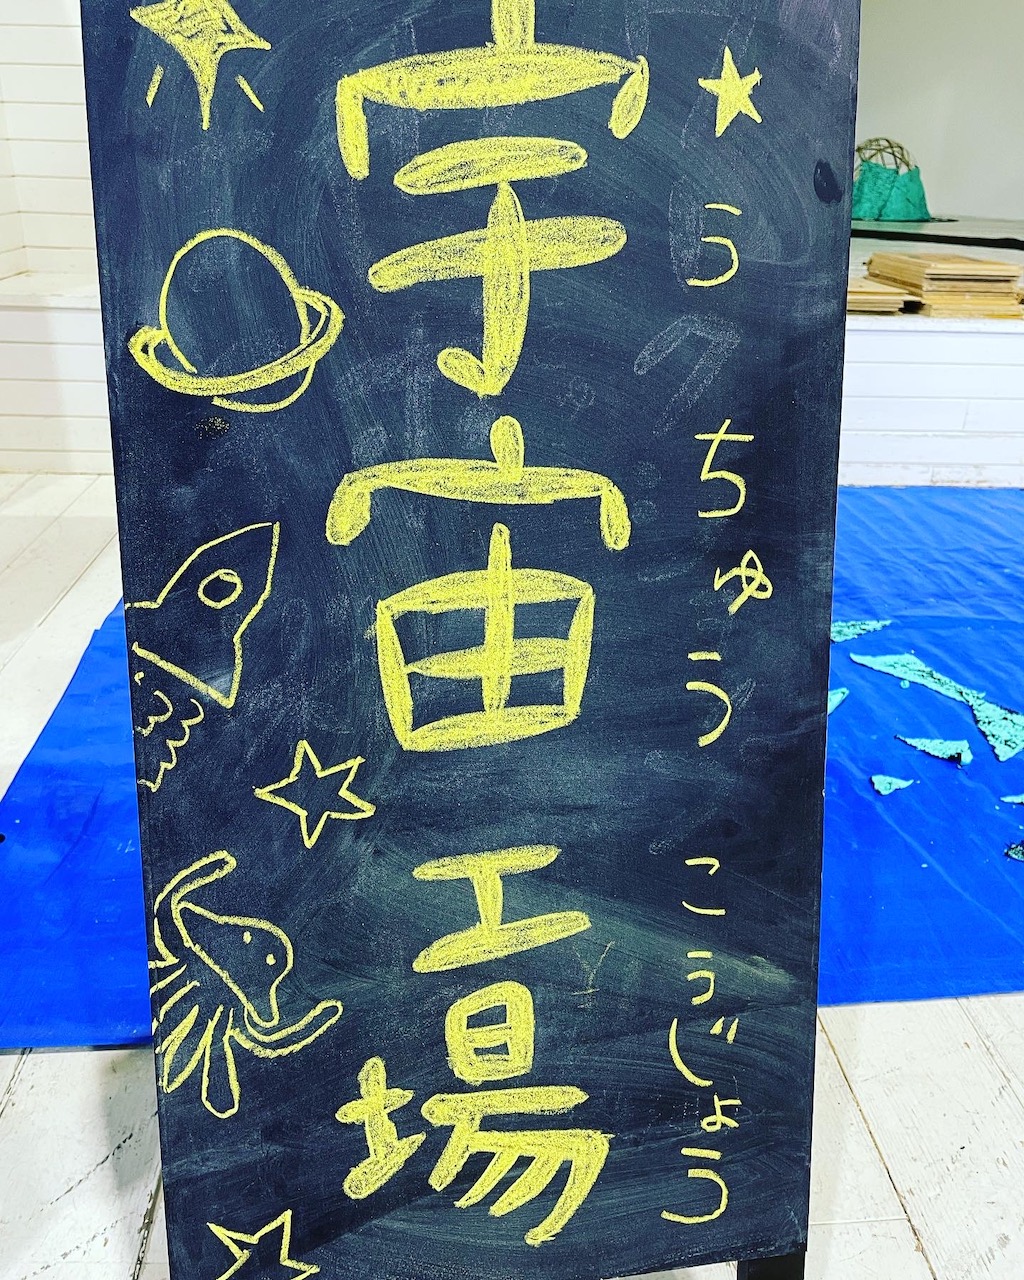 うちゅうこうじょう
宇宙工場